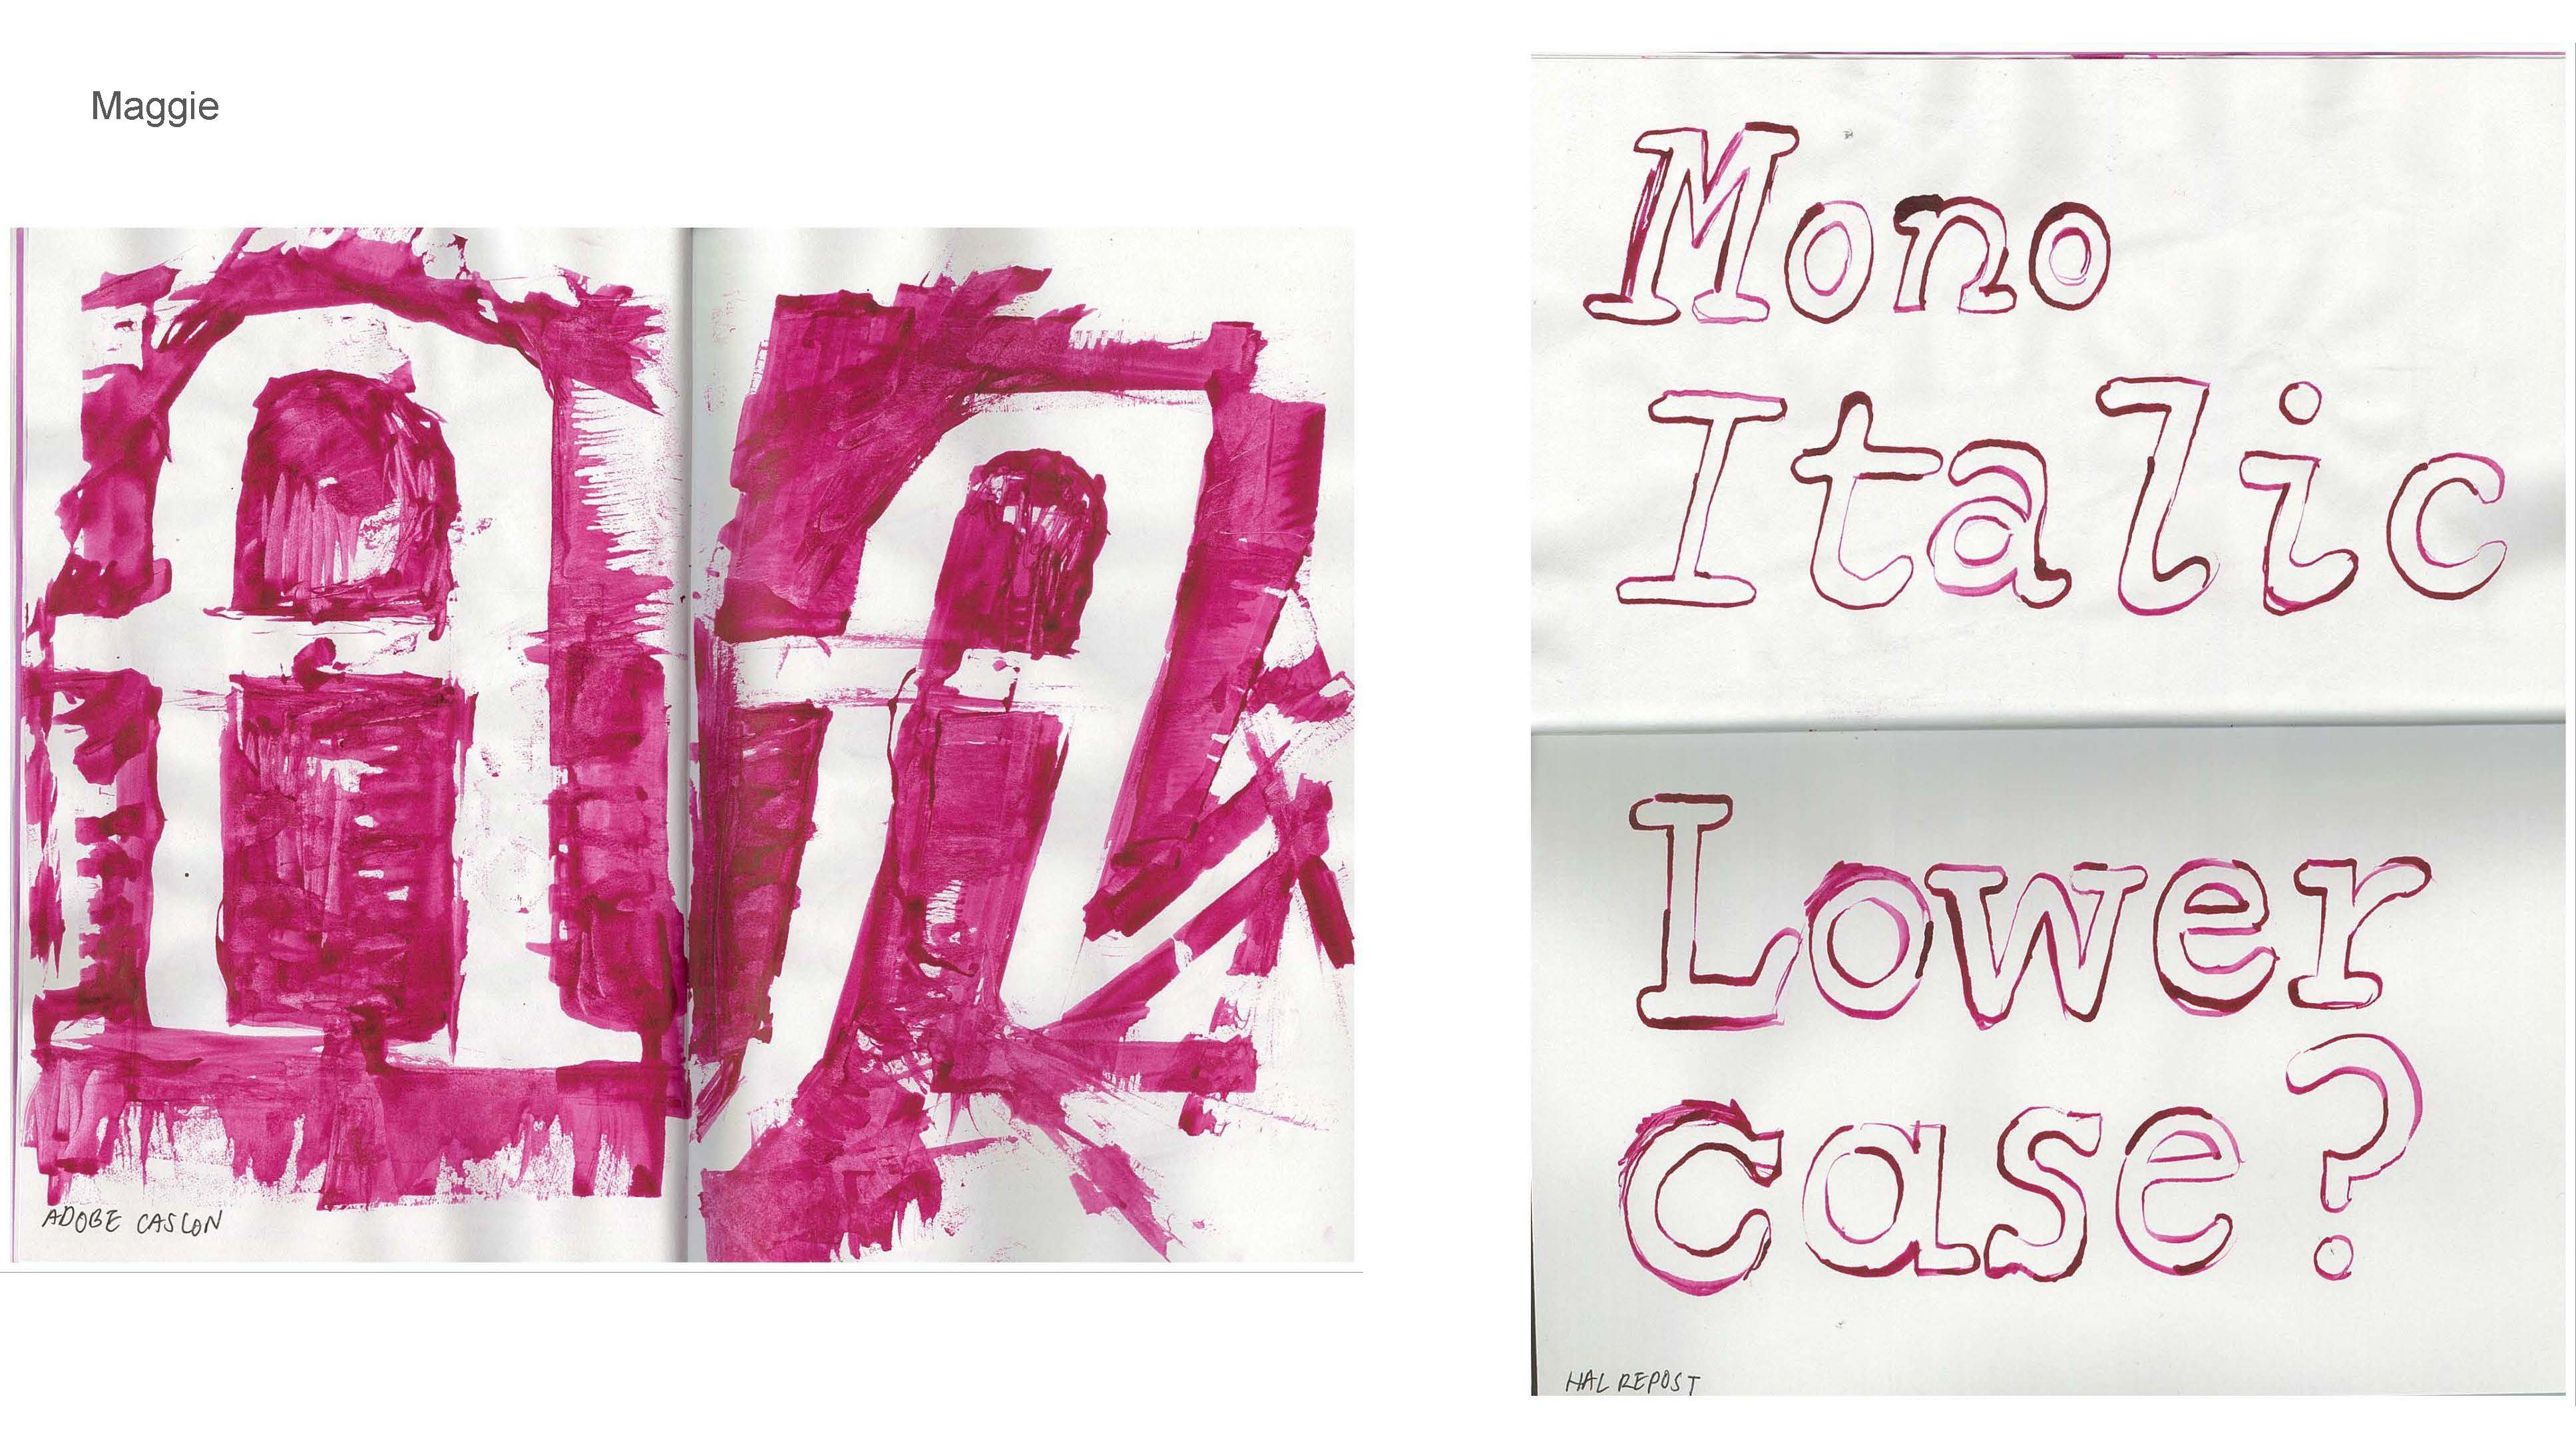 Maggie
ADOBE CASLON
Mono
Italic
Lower
case?
HAL REPOST